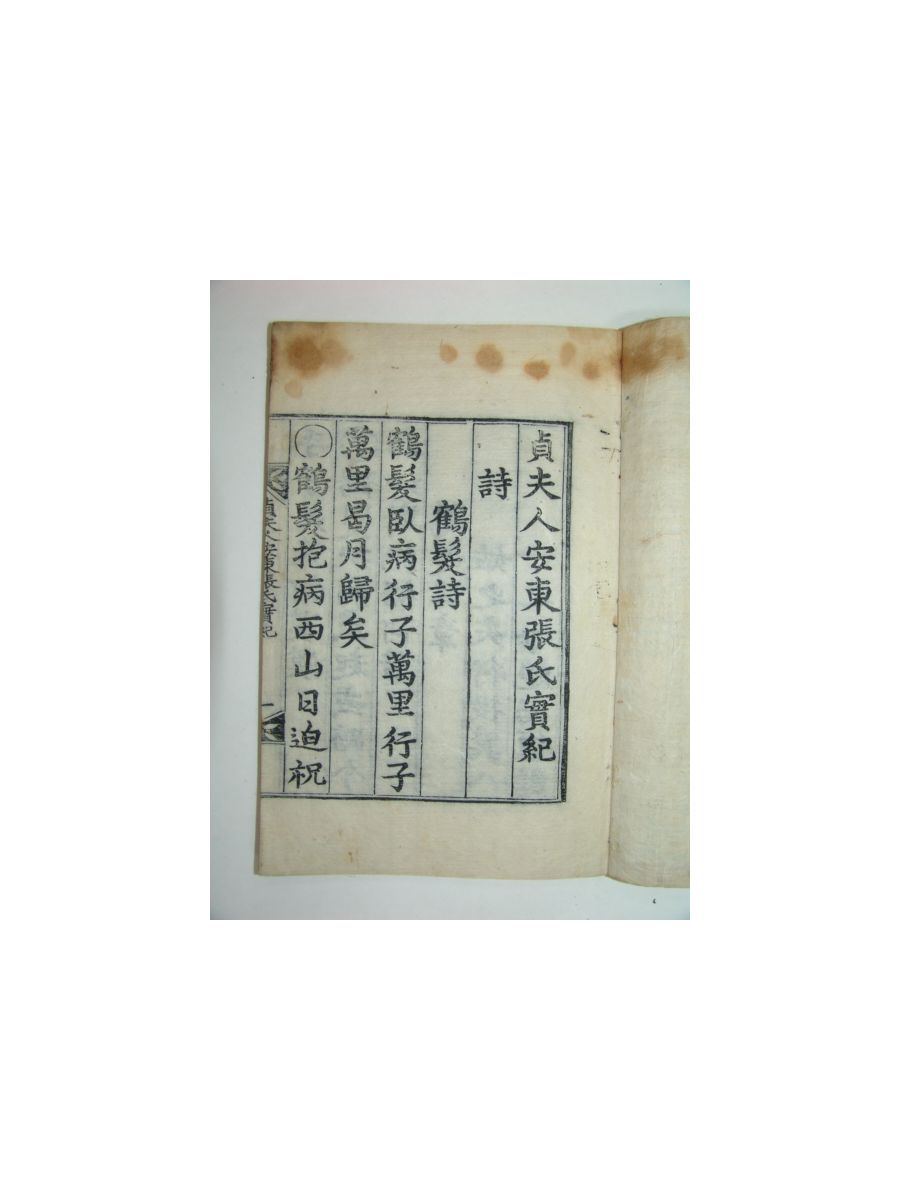 貞夫人安東張氏實紀
詩
鶴髮詩
鶴髮臥病行子萬里行子
萬里曷月歸矣
○鶴髮抱病西山日迫祝
貞夫人安東張氏實紀
一